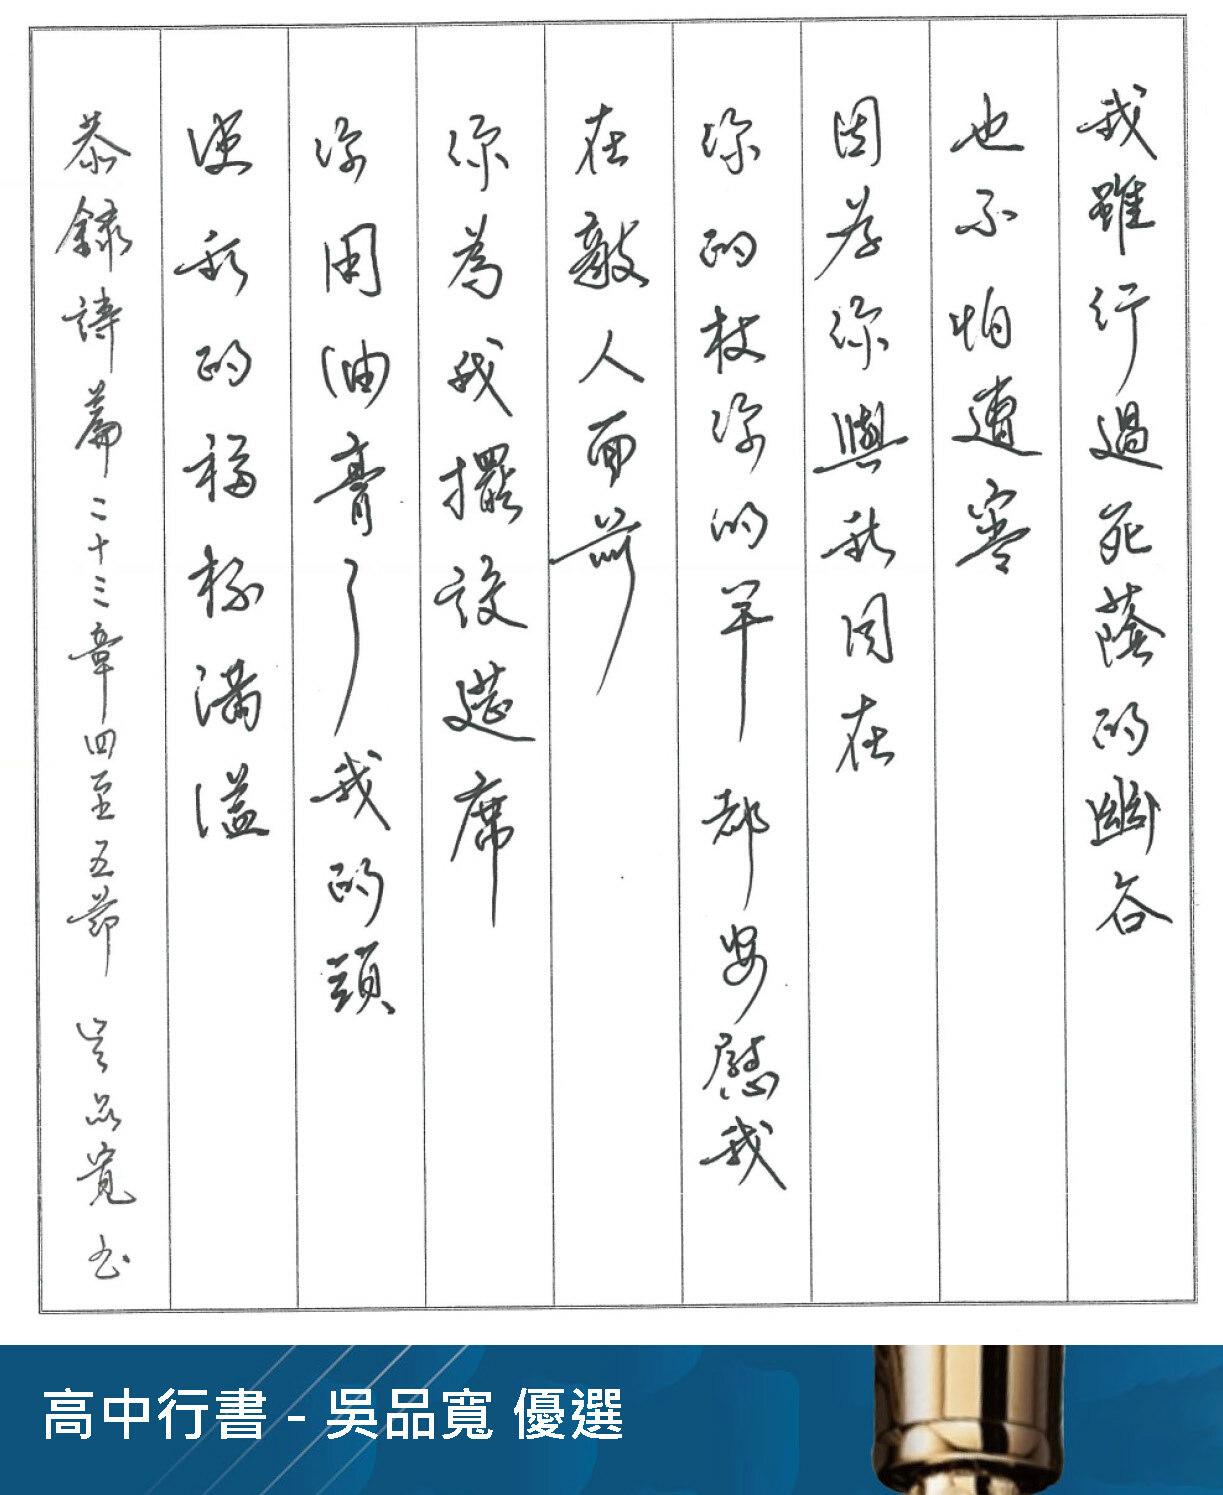 我雖行過死蔭的幽谷
也不怕遭害
因為你與我同在
你的杖你的竿都安慰我
在敵人面前
你為我擺設筵席
你用油膏了我的頭
使我的福杯滿溢
恭錄詩篇二十三章四至五節 吳品寬書
高中行書 - 吳品寬 優選